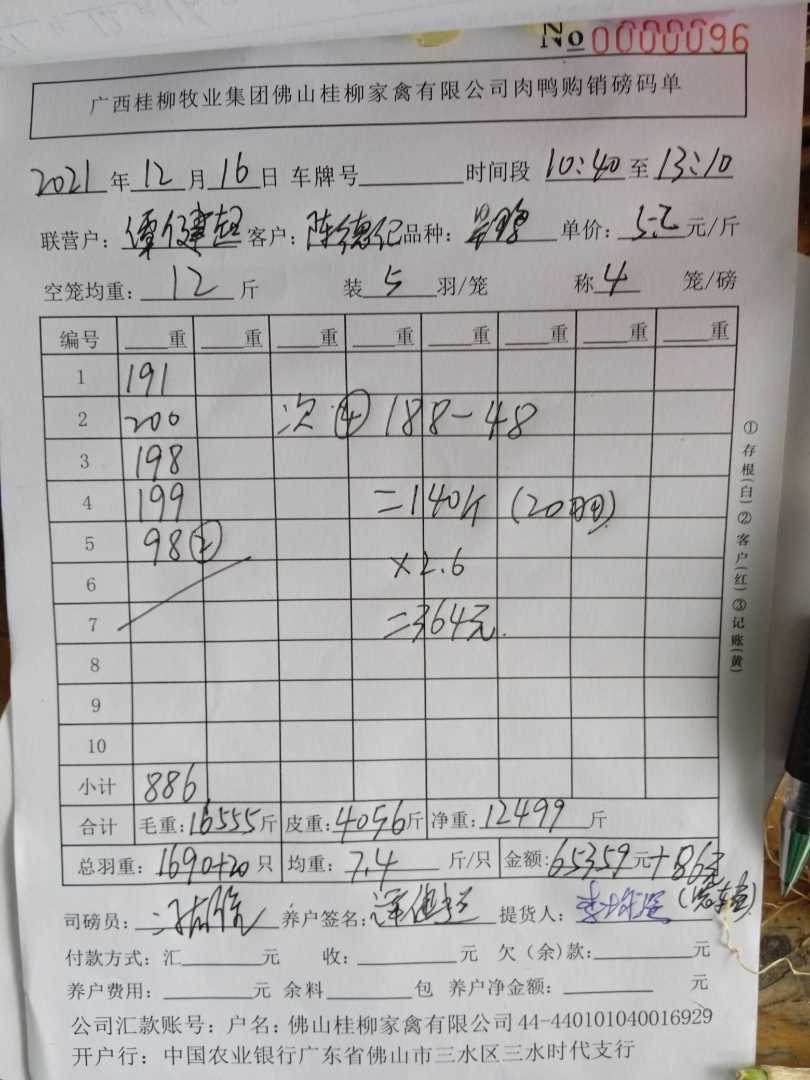 No 0000096
广西桂柳牧业集团佛山桂柳家禽有限公司肉鸭购销磅码单
2021年12月16日 车牌号 时间段 10:40至13:10
联营户: 客户:陈德记 品种: 单价:5.2元/斤
空笼均重:12斤 装5羽/笼 称4笼/磅
编号 重 重 重 重 重 重 重 重
1 191
2 200 次④ 188-48
3 198
4 199 =140斤 (20羽)
5 98②
×2.6
6
7 =364元
8
9
10
小计 886
合计 毛重:16555斤 皮重:4056斤 净重:12499斤
总羽重:1690+20只 均重:7.4斤/只 金额:65359元+86元
司磅员: 养户签名: 提货人:
付款方式:汇 元 收: 元 欠(余)款: 元
养户费用: 元 余料 包 养户净金额: 元
公司汇款账号:户名:佛山桂柳家禽有限公司44-440101040016929
开户行:中国农业银行广东省佛山市三水区三水时代支行
①存根(白)②客户(红)③记账(黄)